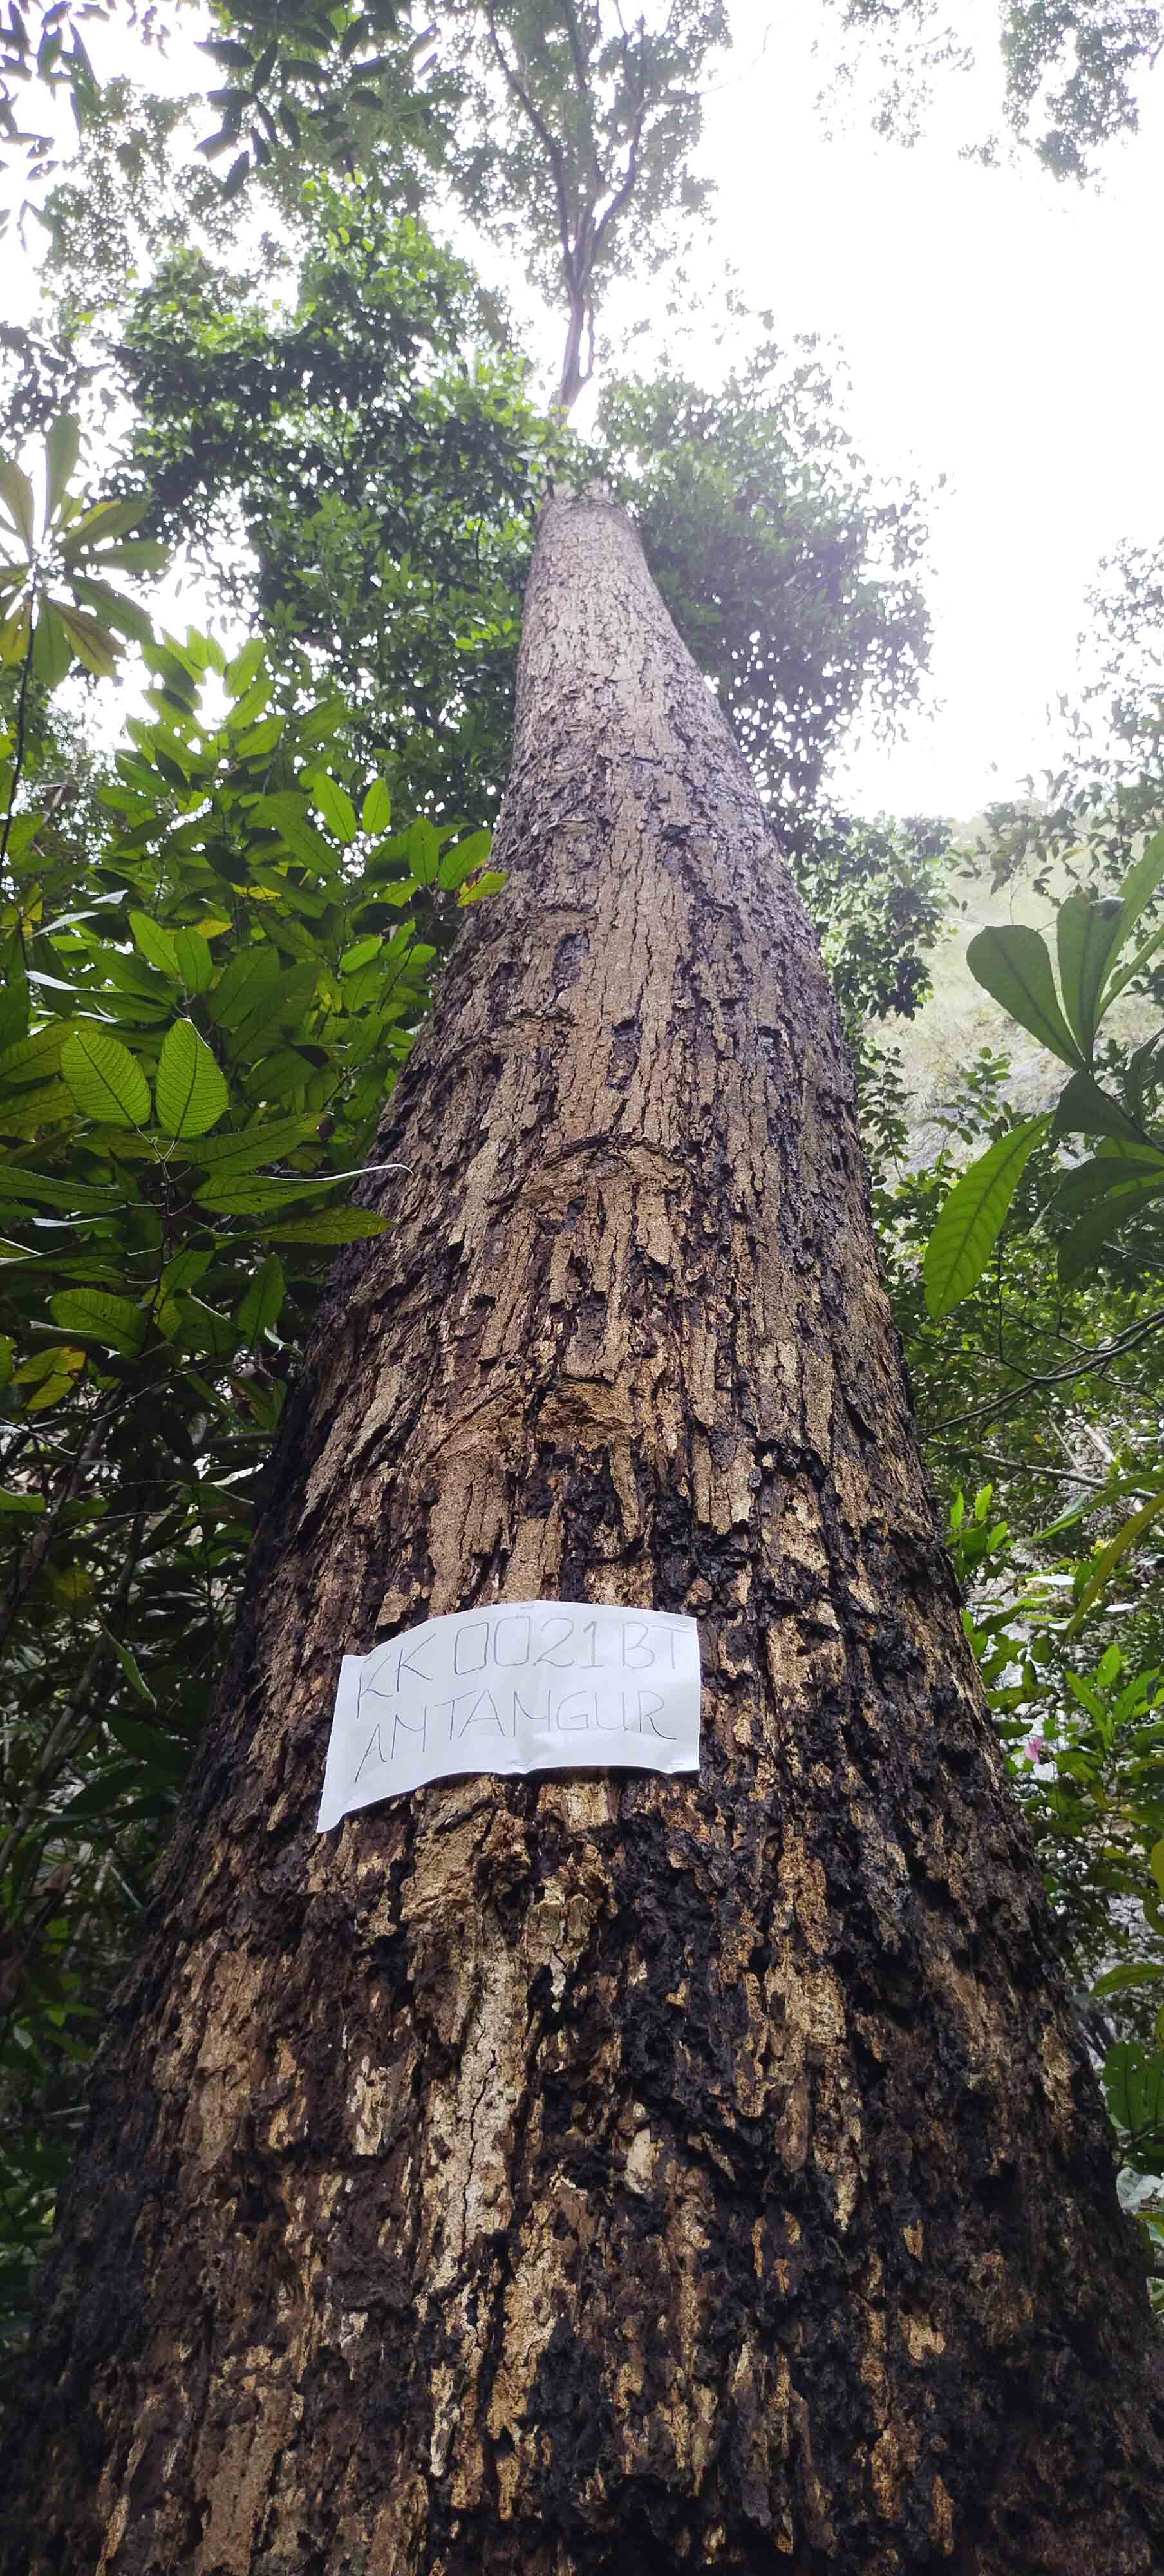 KK 0021 BT
AMTANGUR